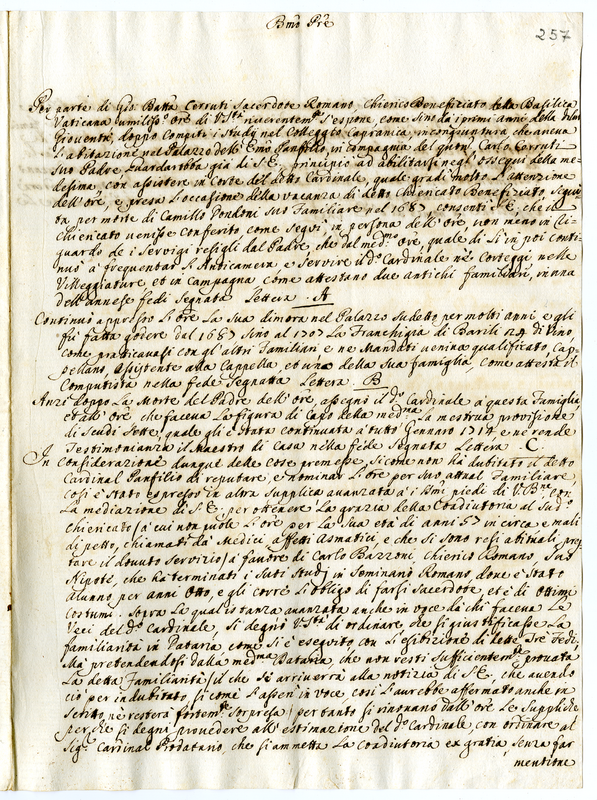 Bmo Pre
257
Per parte di Gio: Batta Cerruti Sacerdote Romano, Chierico Beneficiato della Basilica
Vaticana umilissº Ore di Vsta riverentemte s'espone, come sino da i primi anni della sua
Gioventù, doppo compiti i study nel Colleggio Capranica, in congiuntura che aveva
L'abitazione nel Palazzo dell' Emo Panfilio in compagnia del quon: Carlo Cerruti
suo Padre, Guardarobba già di S.E. principiò ad abilitarsi negl'ossequi della me-
desima, con assistere in Corte del detto Cardinale, quale gradì molto L'attenzione
dell'ore, e presa L'occasione della vacanza di detto Chiericato Beneficiato, segui-
ta per morte di Camillo Dondoni suo Familiare nel 1687 consentì S.E, che il
Chiericato venisse conferito come seguì in persona dell'ore, non meno in ri-
guardo de i servigi resigli dal Padre, che dal medmo Ore, quale di lì in poi conti-
nuò a frequentar L'Anticamera, e servire il do Cardinale ne' Corteggi nelle
Villeggiature, et in campagna come attestano due antichi familiari, in una
dell'annesse fedi segnata Lettera . A
Continuò appresso L'ore La sua dimora nel Palazzo sudetto per molti anni e gli
fù fatta godere dal 1687 sino al 1707 La Franchigia di Barili 24 di vino
come praticavasi con gl'altri Familiari e ne Mandati veniva qualificato, Cap-
pellano, assistente alla Cappella, et uno della sua famiglia, come attesta il
Computista nella fede segnatta Lettera . B
Anzi doppo La Morte del Padre dell'ore, assegnò il do Cardinale a questa famiglia,
et all'ore che faceva La figura di Capo della medma La mestrua provisione
di scudi sette, quale gli è stata continuata à tutto Gennaro 1714, e ne rende
Testimonianza il Maestro di Casa nella fede segnata Lettera . C.
In considerazione dunque delle cose premesse, sicome non ha dubitato il detto
Cardinal Panfilio di reputare, e nominar L'ore per suo attual Familiare,
così è stato espresso in altra supplica avanzata à i Bmi piedi di V. Bne con
La mediazione di S.E. per ottenere La grazia della Coadiutoria al sudo
Chiericato (à cui non puole L'ore per La sua età di anni 67 in circa e mali
di petto, chiamati da Medici affetti Asmatici, e che si sono resi abituali, pres-
tare il dovuto servizio) à favore di Carlo Bazzoni, Chierico Romano, suo
Nipote, che ha terminati i suoi studj in Seminario Romano, dove è stato
alunno per anni otto, e gli corre L'obligo di farsi Sacerdote, et è di ottimi
costumi. Sopra Le qual istanza avanzata anche in voce dà chi faceva Le
Veci del do Cardinale, si degnò Vsta di ordinare che si giustificasse La
familiarità in Dataria, come si è eseguito, con L'esibizione di dette tre fedi,
Ma pretendendosi dalla medma Dataria, che non resti sufficientemte provata
La detta Familiarità, il che se arriverà alla notizia di S.E, che avendo
ciò per indubitato, si come L'asserì in voce così L'avrebbe affermato anche in
scritto, ne resterà fortemte sorpresa, per tanto si rinovano dall'ore Le suppliche
perche si degni provedere all'estimazione del do Cardinale, con ordinare al
Sigr Cardinal Prodatario, che si ammetta La Coadiutoria ex gratia, senza far
mentione